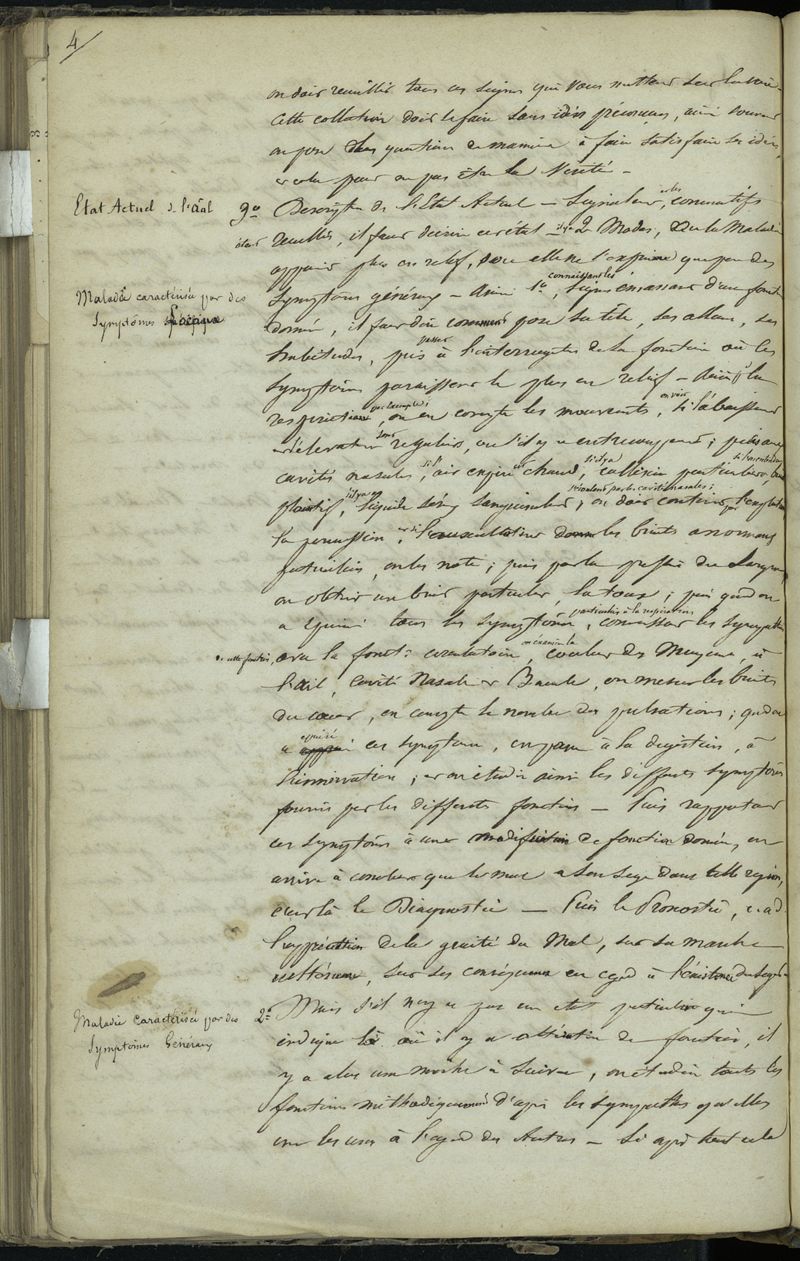 4
on doit recueillir tous ces signes qui vous mettent sur la voie
Cette collection doit se faire sans idées préconçues, ainsi souvent
on pose des questions de manière à faire satisfaire ses idées
et cela peut ne pas être la Vérité —
Etat Actuel de l'anal
3o Description de l'Etat Actuel — Signaleur, les commémoratifs
étant recueillis, il faut décrire cet état — il y a 2 Modes, Ou la Maladie
apparait plus en relief, ou elle ne s'exprime que par des
Maladie caractérisée par des
Symptômes
symptômes généraux — Ainsi 1o, connaissant les signes émanant d'une fonct
donnée, il faut donc comment pose sa tête, ses allures, ses
habitudes, puis passer à l'interrogation de la fonction où les
symptômes paraissent le plus en relief — Ainsi la
respiration par exemple, on en compte les mouvements, on voit si l'abaissement
et l'élévation sont réguliers, ou s'il y a entrecoupement; puis aux
cavités nasales, si l'air expiré est chaud, s'il y a collection particulière,
plaintif, s'il y a liquide séreux sanguinolent, s'écoulant par les cavités nasales; on doit continuer l'exploration
la percussion, et si l'auscultation donne les bruits anormaux
particuliers, on les note; puis par la pression du Larynx
on obtient un bruit particulier, la toux; puis quand on
a épuisé tous les symptômes particuliers à la respiration, connaissant les sympathies
de cette fonction, avec la fonct: circulatoire, on examine la couleur des Muqueuses, à
l'œil, cavité Nasale et Bucale, on mesure les bruits
du cœur, on compte le nombre des pulsations; quand on
a épuisé ces symptômes, on passe à la digestion, à
l'innervation; et on étudie ainsi les differents symptômes
fournis par les differentes fonctions — Puis rapportant
ces symptômes à une modification de fonction donnée, on
arrive à conclure que le mal a son siége dans telle région,
c'est là le Diagnostic — Puis le Pronostic, c. a d
l'appréciation de la gravité du Mal, sur sa marche
ultérieure, sur ses conséquences eu egard à l'existence du sujet —
Maladie caractérisée par des
Symptômes Généraux
2o Mais s'il n'y a pas un etat particulier qui
indique là où il y a altération de fonction, il
y a alors une marche à suivre, on étudie toutes les
fonctions méthodiquement d'après les sympathies qu'elles
ont les unes à l'égard des Autres — Si après tout cela